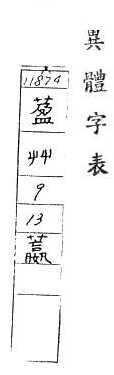 異體字表
11874
萾
艸
9
13